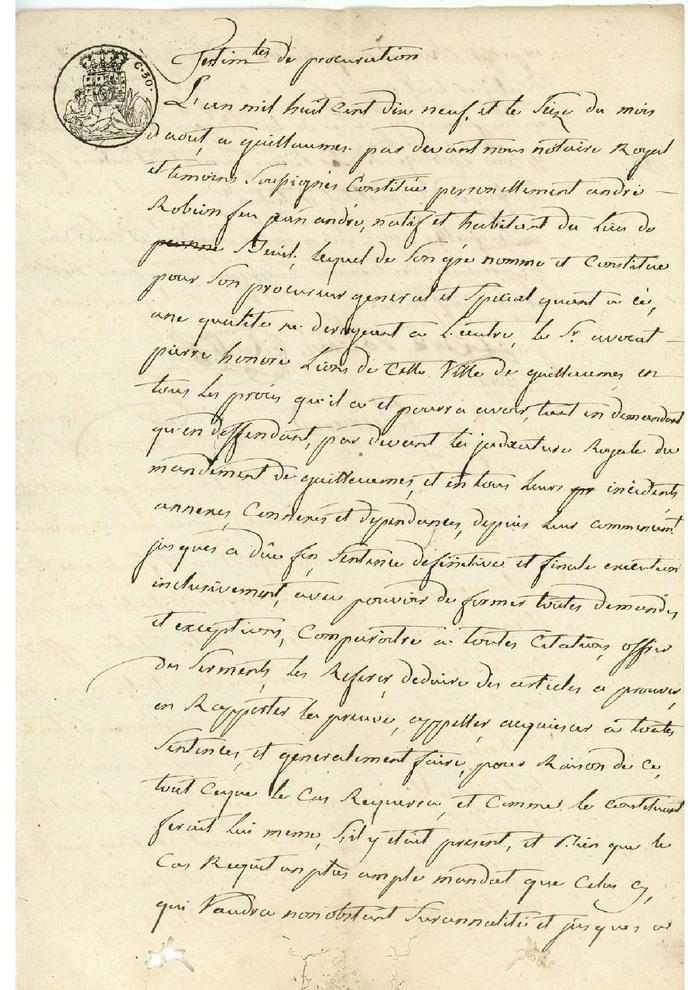 C. 50.
Testim.les de procuration
L'an mil huit Cent dix neuf, et le Seize du mois
d'aout, a guillaumes par devant nous notaire Royal
et temoins Soussignés Constitué personellement andré
Robion feu jean andré, natif et habitant du Lieu de
Beuil, Lequel de Son gré nomme et Constitue
pour Son procureur general et Special quant a ce,
une qualité ne derogeant a L'autre, le Sr. avocat
pierre honoré Lions de Cette Ville de guillaumes, en
tous les procés qu'il a et pourra avoir, tant en demandant
qu'en deffendant, par devant la judicature Royale du
mandement de guillaumes, et en tous leurs incidents
annexes, Connexes et dependances, depuis leur commencemt
jusques a düe fin, Sentence definitive et finale execution
inclusivement, avec pouvoir de former toutes demandes
et exceptions, Comparoitre a toutes Citations, offrir
des Serments, les Referer, deduire des articles a prouver,
en Rapporter la preuve, appeller, acquiescer a toutes
Sentences, et generalement faire, pour Raison de ce,
tout Ceque le Cas Requerra, et Comme le constituant
ferait lui meme, S'il y était present, et bien que le
Cas Requit un plus ample mandat que Celui Cy,
qui Vaudra nonobstant Surannalité et jusques a